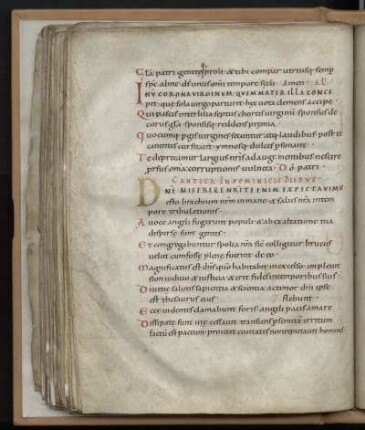 Gła patri genitoq; proli · & tibi compar utriusq; semp
sps alme ds unus omi tempore scli · Amen ·
IHV CORONA VIRGINUM QUEM MATER ILLA CONCE
pit · que sola uirgo parturit · hęc uota clemens accipe ·
Qui pascis inter lilia septus choreis uirginu · sponsus de
corus gła sponsisq; reddens premia
Quocumq; pgis uirgines secuntur atq; laudibus post te
canentes cursitant · ymnosq; dulces psonant ·
Te deprecamur largius nris ad auge mentibus nescire
prsus oma corruptionis uulnera · Do patri ·
CANTICA IN DOMINICIS DIEBUS
DNE MISERERE NRI TE ENIM EXPECTAVIMUS
esto brachium nrm in mane · & salus nra in tem
pore tribulationis ·
A uoce angeli fugerunt populi · & ab exaltatione tua
disperse sunt gentes ·
Et congregabuntur spolia nra sic colligitur brucus
uelut cum fosse plene fuerint de eo ·
Magnificatus est dns qm habitauit in excelso · impleuit
sion iudicio & iusticia · & erit fides in temporibus tuis
Diuitie salutis sapientia & scientia · ac timor dni ipse
est thesaurus eius flebunt ·
Ecce uidentes clamabunt foris · angeli pacis amare
Dissipate sunt uię cessauit transiens p semita · irritum
factu est pactum proiecit ciuitates non reputauit homines